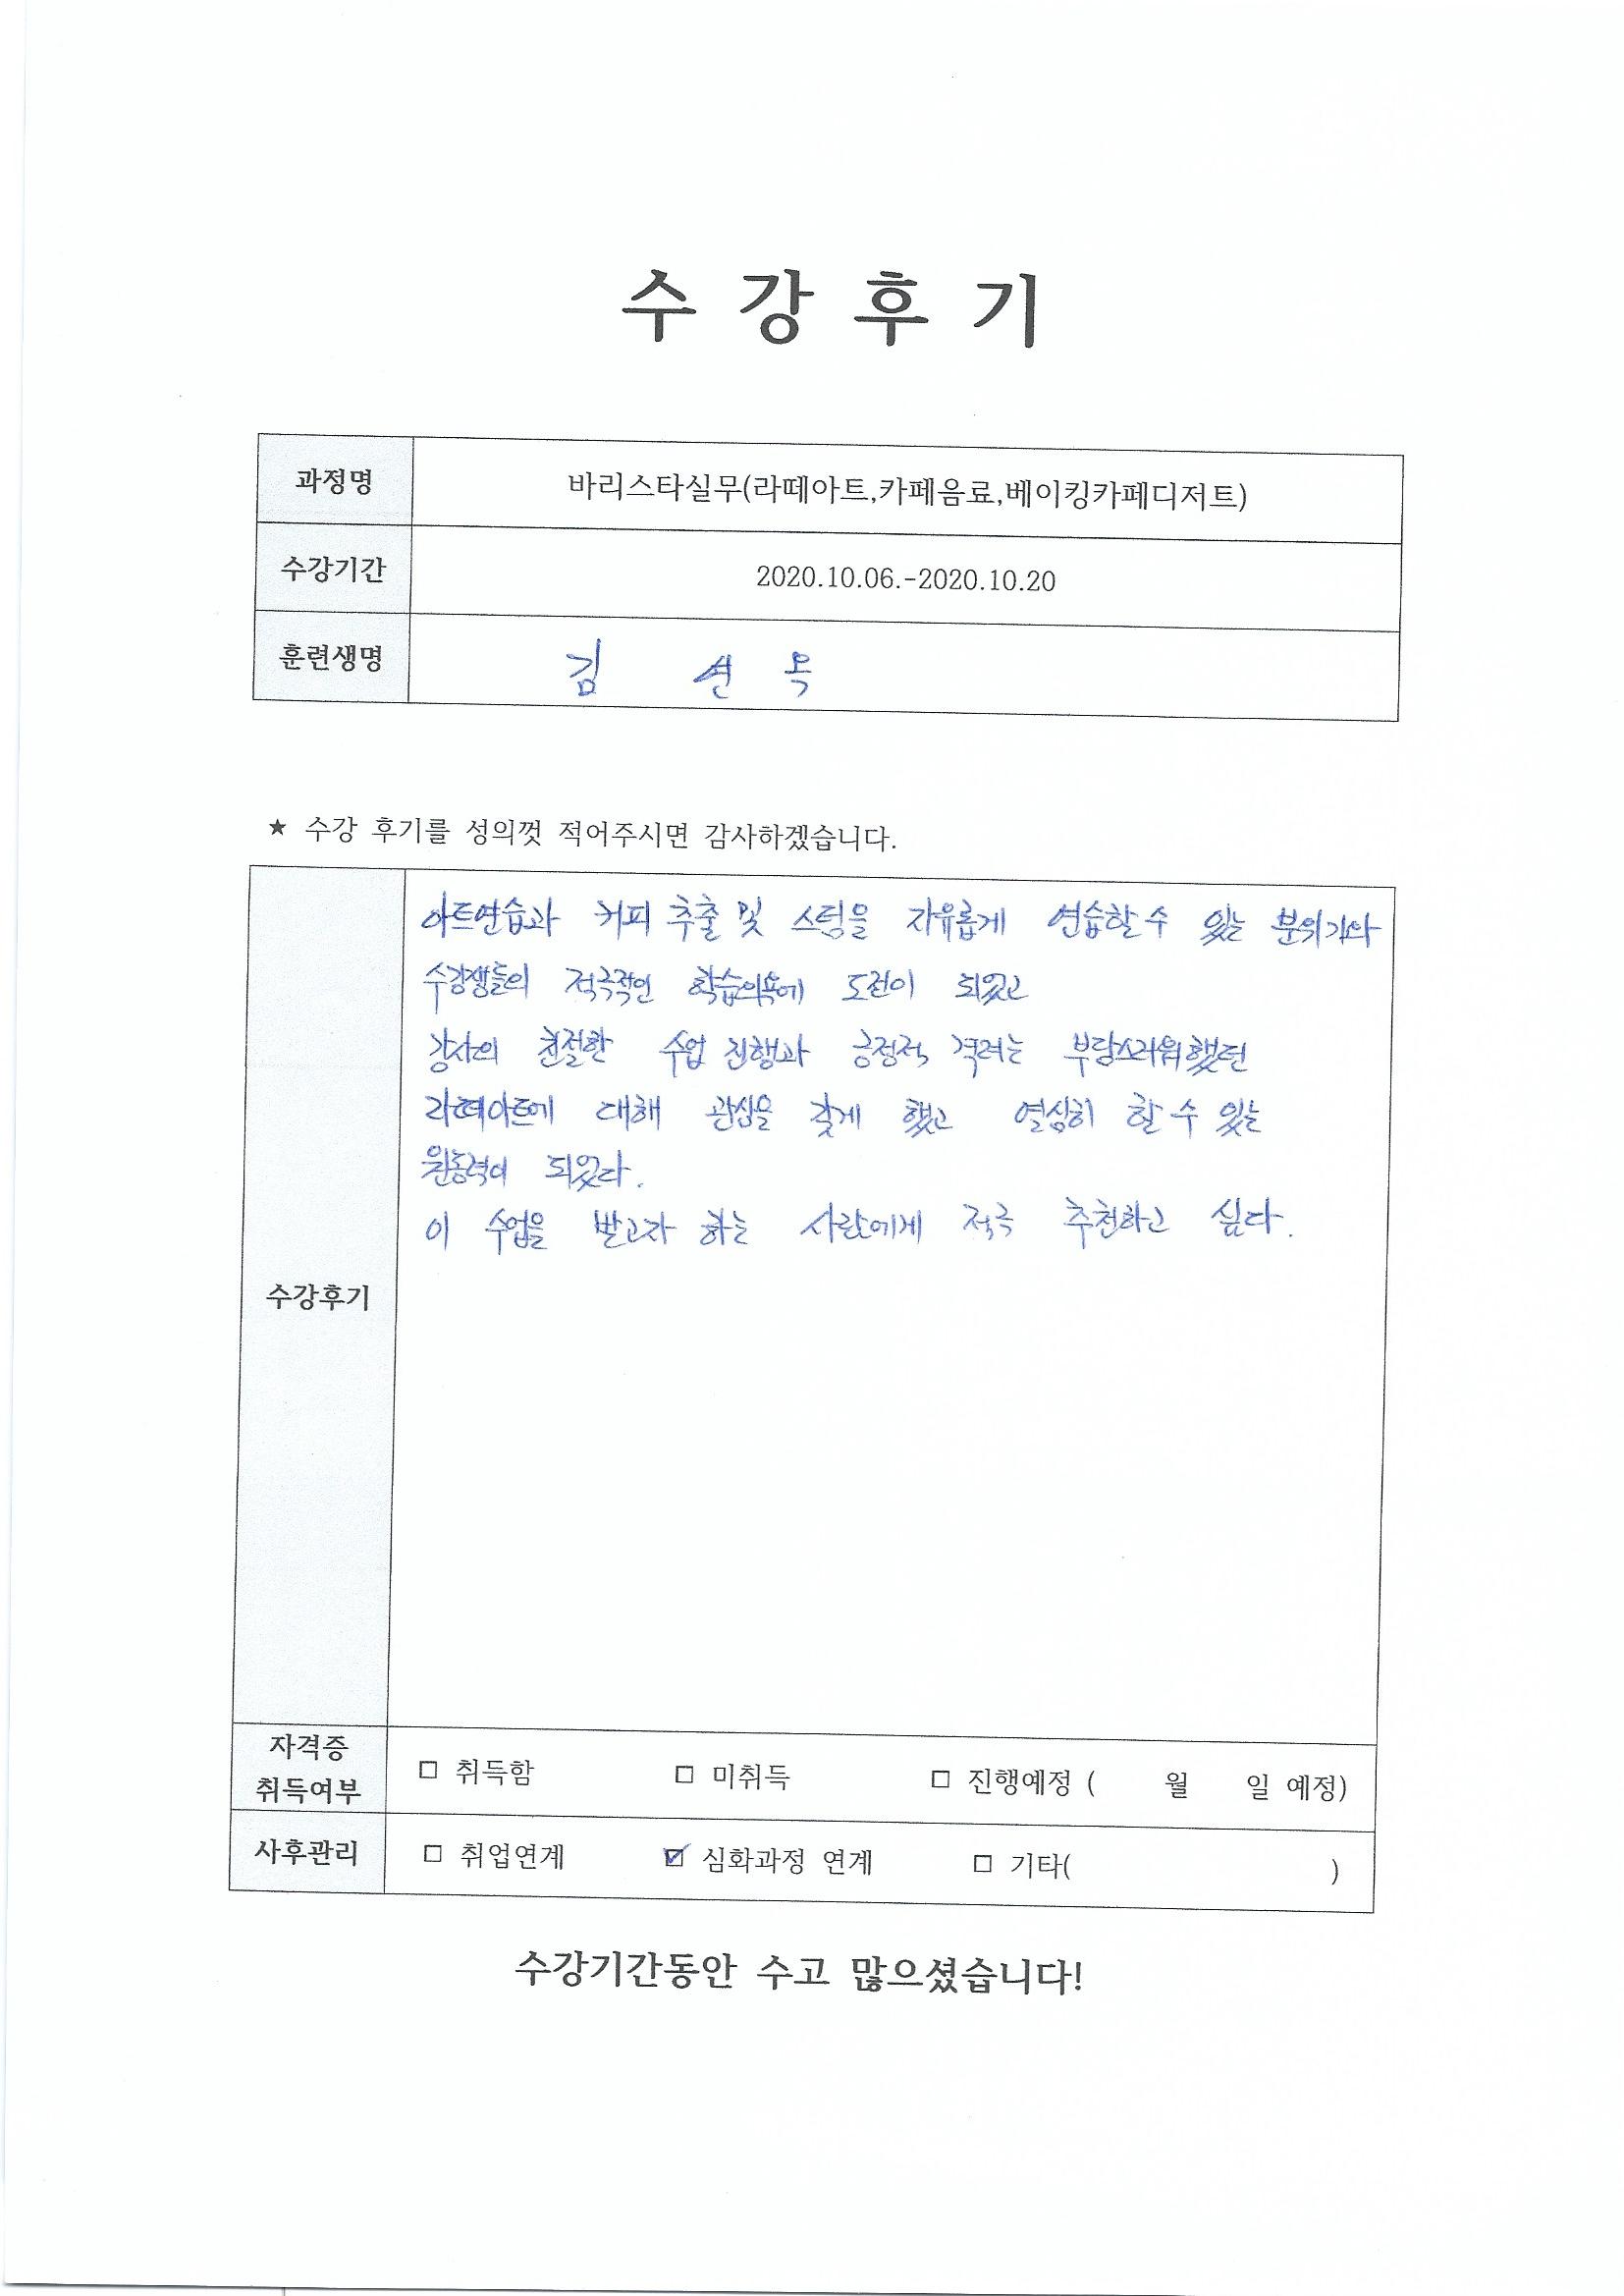 수 강 후 기
과정명 바리스타실무(라떼아트,카페음료,베이킹카페디저트)
수강기간 2020.10.06.-2020.10.20
훈련생명 김 선 옥
★ 수강 후기를 성의껏 적어주시면 감사하겠습니다.
아트연습과 커피 추출 및 스팀을 자유롭게 연습할 수 있는 분위기와
수강생들의 적극적인 학습의욕에 도전이 되었고
강사의 친절한 수업 진행과 긍정적 격려는 부담스러워했던
라떼아트에 대해 관심을 갖게 했고 열심히 할 수 있는
원동력이 되었다.
이 수업을 받고자 하는 사람에게 적극 추천하고 싶다.
수강후기
자격증 취득여부 □ 취득함 □ 미취득 □ 진행예정 ( 월 일 예정)
사후관리 □ 취업연계 ☑ 심화과정 연계 □ 기타( )
수강기간동안 수고 많으셨습니다!